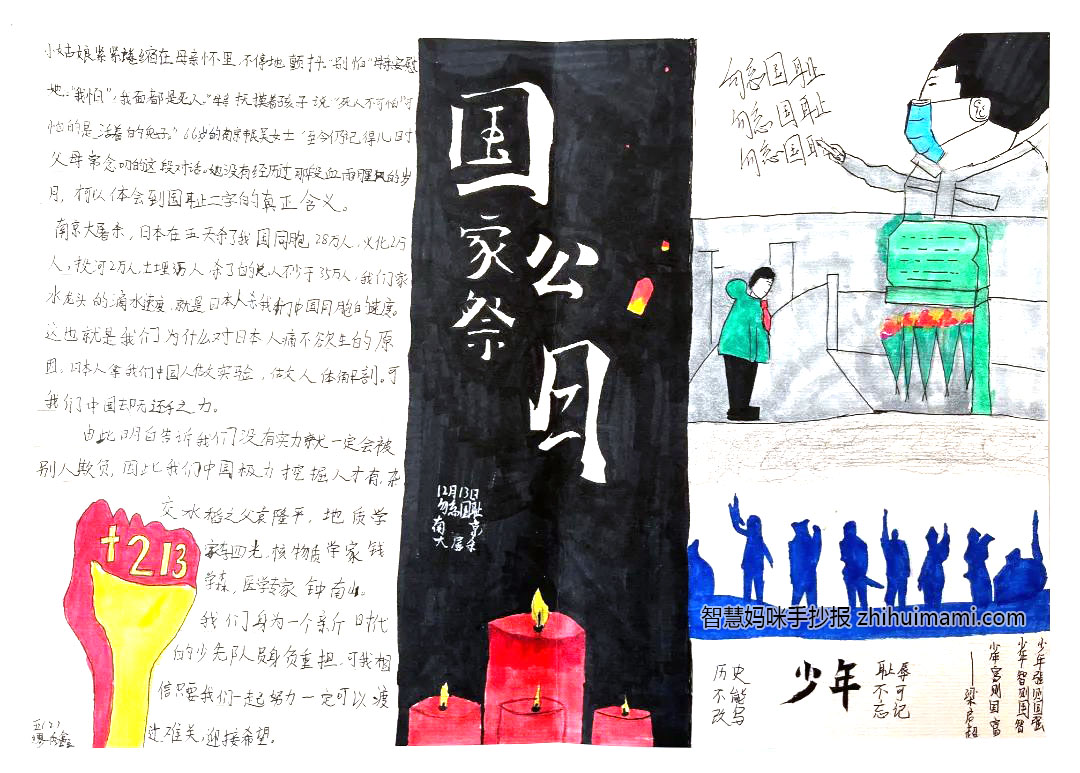 小姑娘紧紧缩在母亲怀里,不停地颤抖."别怕"母亲安慰
她."我怕",我面都是死人."母亲抚摸着孩子说"死人不可怕"可
怕的是活着的鬼子。"66岁的南京市民吴女士"至今仍记得儿时
父母常念叨的这段对话。她没有经历过那段血雨腥风的岁
月,何以体会到国耻二字的真正含义。
南京大屠杀,日本在五天杀了我国同胞28万人,火化2万
人,投河2万人土埋 万人杀了的总人不少于35万人,我们家
水龙头的滴水速度,就是日本人杀我们中国同胞的速度。
这也就是我们为什么对日本人痛不欲生的原
因,日本人拿我们中国人做实验,做人体解剖。可
我们中国却无还手之力。
由此明白告诉我们没有实力就一定会被
别人欺负,因此我们中国极力挖掘人才有,杂
交水稻之父袁隆平,地质学
家李四光,核物质学家钱
学森,医学专家钟南山。
我们身为一个新时代
的少先队员身负重担,可我相
信只要我们一起努力一定可以渡
过难关,迎接希望。
+213
五(2)
国家祭
公日
12月13日
勿忘国耻
南京
大屠杀
勿忘国耻
勿忘国耻
勿忘国耻
智慧妈咪手抄报 zhihuimami.com
历史
不能
改写
少年
耻辱
不可
忘记
少年强则国强
少年智则国智
少年富则国富
——梁启超